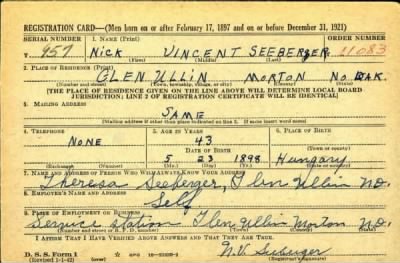 REGISTRATION CARD—(Men born on or after February 17, 1897 and on or before December 31, 1921)
SERIAL NUMBER 1. NAME (Print) ORDER NUMBER
957 NICK VINCENT SEEBERGER 11083
(First) (Middle) (Last)
2. PLACE OF RESIDENCE (Print)
GLEN ULLIN MORTON NO DAK.
(Number and street) (Town, township, village, or city) (County) (State)
[THE PLACE OF RESIDENCE GIVEN ON THE LINE ABOVE WILL DETERMINE LOCAL BOARD
JURISDICTION; LINE 2 OF REGISTRATION CERTIFICATE WILL BE IDENTICAL]
3. MAILING ADDRESS
SAME
[Mailing address if other than place indicated on line 2. If same insert word same]
4. TELEPHONE 5. AGE IN YEARS 6. PLACE OF BIRTH
NONE 43
DATE OF BIRTH (Town or county)
5 23 1898 Hungary
(Exchange) (Number) (Mo.) (Day) (Yr.) (State or country)
7. NAME AND ADDRESS OF PERSON WHO WILL ALWAYS KNOW YOUR ADDRESS
Theresa Seeberger, Glen Ullin ND.
8. EMPLOYER'S NAME AND ADDRESS
Self
9. PLACE OF EMPLOYMENT OR BUSINESS
Service station Glen Ullin Morton ND.
(Number and street or R. F. D. number) (Town) (County) (State)
I AFFIRM THAT I HAVE VERIFIED ABOVE ANSWERS AND THAT THEY ARE TRUE.
D. S. S. Form 1
(Revised 1-1-42) GPO
N.V. Seeberger